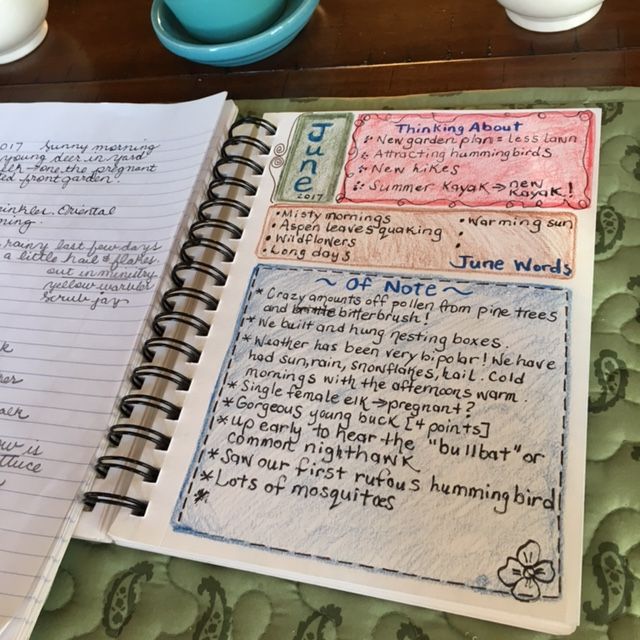 2017 Sunny morning
young deer in yard
elk → one the pregnant
front garden.
Oriental
rainy last few days
a little hail & flakes
out in ministry
yellow warbler
scrub jay
is
June
2017
Thinking About
New garden plan = less lawn
Attracting hummingbirds
New hikes
Summer Kayak → new
Kayak!
• Misty mornings
• Aspen leaves quaking
• Wildflowers
• Long days
• Warming sun
•
•
June Words
~ Of Note ~
* Crazy amounts off pollen from pine trees
and bitterbrush!
* We built and hung nesting boxes.
* Weather has been very bipolar! We have
had sun, rain, snowflakes, hail. Cold
mornings with the afternoons warm.
* Single female elk → pregnant?
* Gorgeous young buck [4 points]
* up early to hear the "bullbat" or
common nighthawk
* Saw our first rufous hummingbird
* Lots of mosquitoes
*